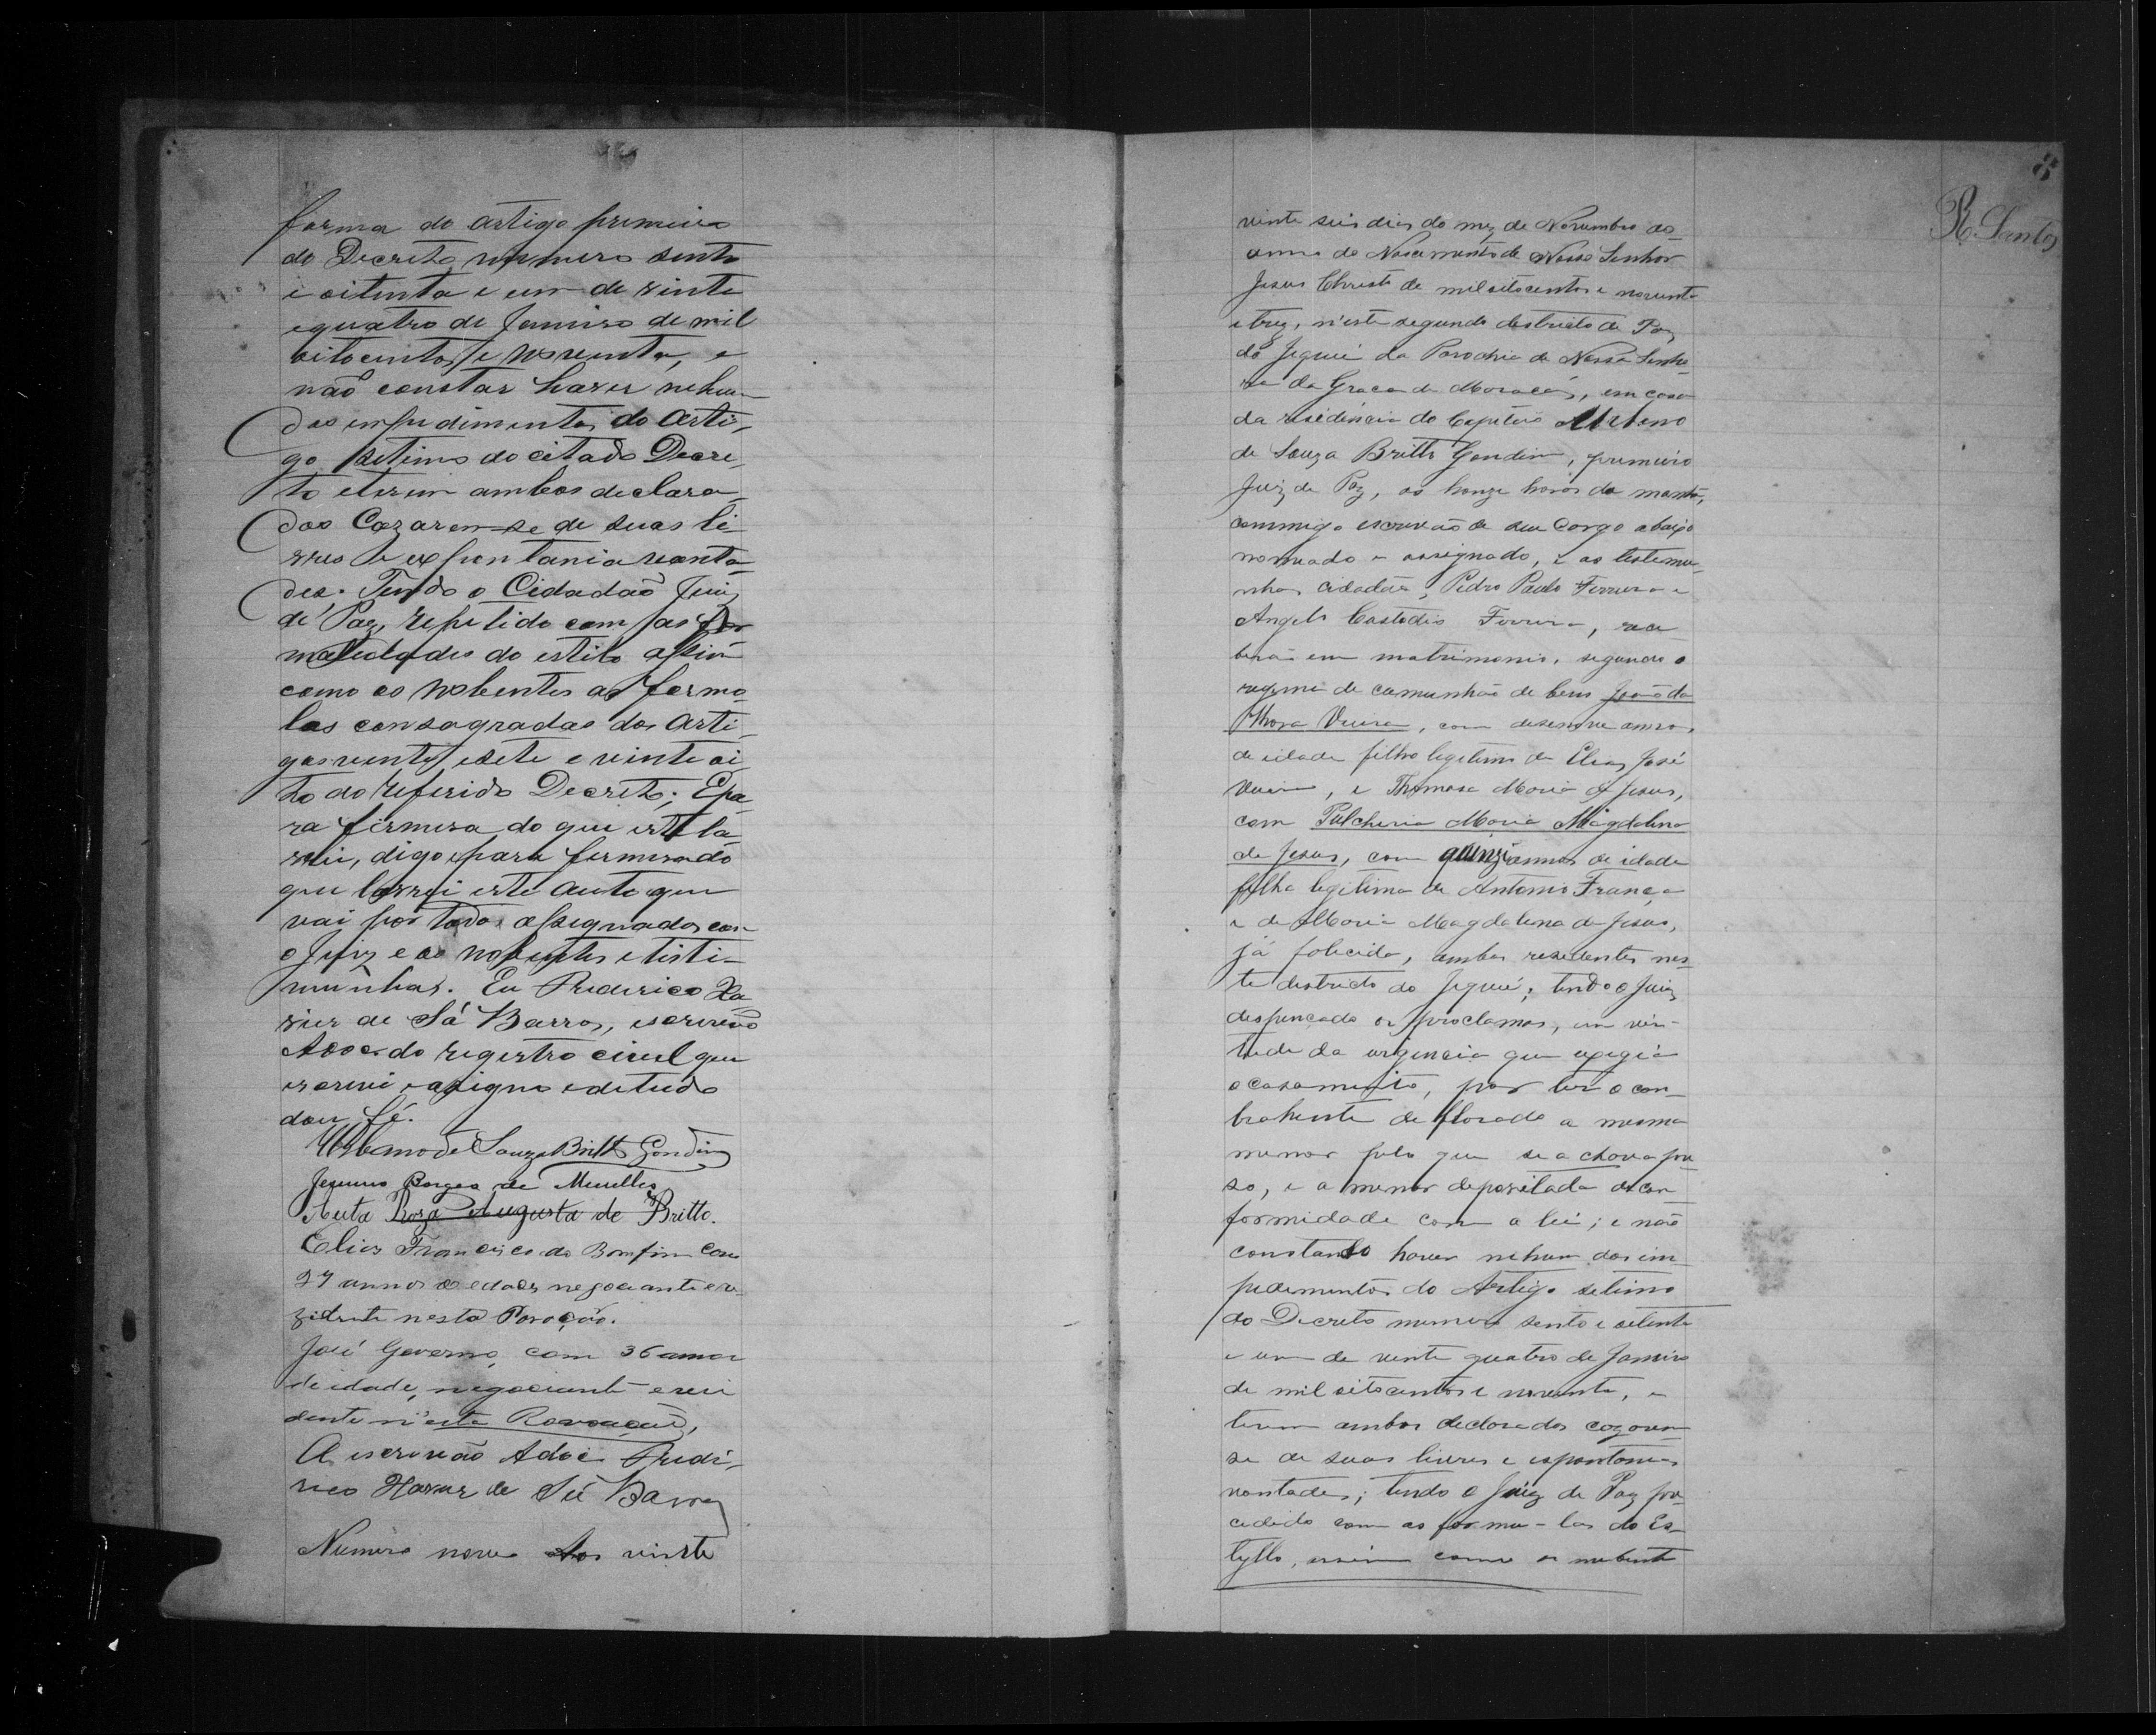 forma do artigo primeiro
do Decreto numero sento
e oitenta e um de vinte
e quatro de Janeiro de mil
oitocentos e noventa, e
não constar haver nehum
dos empedimentos do Arti-
go setimo do citado Decre-
to e terem ambos declara-
dos Cazarem-se de suas li-
vres e expontania vonta-
des. Tendo o Cidadão Juiz
de Paz, repetido com as for
malidades do estilo assim
como os nobentes as formo-
las consagradas dos Arti-
gos vinte e sete e vinte oi-
to do referido Decreto; E pa-
ra firmesa do que este la-
vrei, digo para firmesa do
que lavrei este auto que
vai por todos assignados com
o Juiz e os nobentes e testi-
munhas. Eu Frederico Xa-
vier de Sá Barros, escrivão
Adoc do registro civel que
escrevi e asigno e de tudo
dou fé.
Urbano de Souza Britto Gondim
Jesuino Borges de Meirelles
Auta Roza Augusta de Britto.
Elias Francisco do Bomfim com
27 annos de edade, negociante e re-
zidente nesta Povoação.
José Governo, com 36 annos
de idade, negociante e resi
dente n'esta Povoação,
O escrivão Adoc Frede-
rico Xavier de Sá Barros
Numero nove Aos vinte
8
R. Santos
vinte seis dias do mez de Novembro do
anno do Nascimento de Nosso Senhor
Jesus Christo de mil oitocentos e noventa
e trez, n'este segundo destricto de Paz
do Jequié da Parochia de Nossa Senho-
ra da Graça de Maracás, em casa
da residencia do Capitão Urbano
de Souza Britto Gondim, primeiro
Juiz de Paz, as honze horas da manhã,
commigo escrivão de seu Cargo abaixo
nomeado e assignado, e as testemu-
nhas cidadãos, Pedro Paulo Ferreira e
Angelo Custodio Ferreira, rece
berão em matrimonio, segundo o
regime de comunhão de bens João da
Vieira, com desenove annos
de idade filho legitimo de Elias José
Vieira, e Thomasa Maria de Jesus,
com Pulcheria Maria Magdalena
de Jesus, com quinze annos de idade
filha legitima de Antonio França
e de Maria Magdalena de Jesus,
já falecida, ambos residentes nes-
te destricto do Jequié; tendo o Juiz
despençado os proclamas, em vir-
tude da urgencia que exegia
o casamento, por ter o con-
trahente deflorado a mesma
menor pelo que se achava pre-
so, e a menor depositada de con-
formidade com a lei; e não
constando haver nehum dos im-
pedimentos do Artigo setimo
do Decreto numero sento e oitenta
e um de vinte quatro de Janeiro
de mil oitocentos e noventa, e
terem ambos declarados cazarem
se de suas livres e espontaneas
vontades; tendo o Juiz de Paz pro-
cedido com as formu-las do Es-
tyllo, assim como os nubente